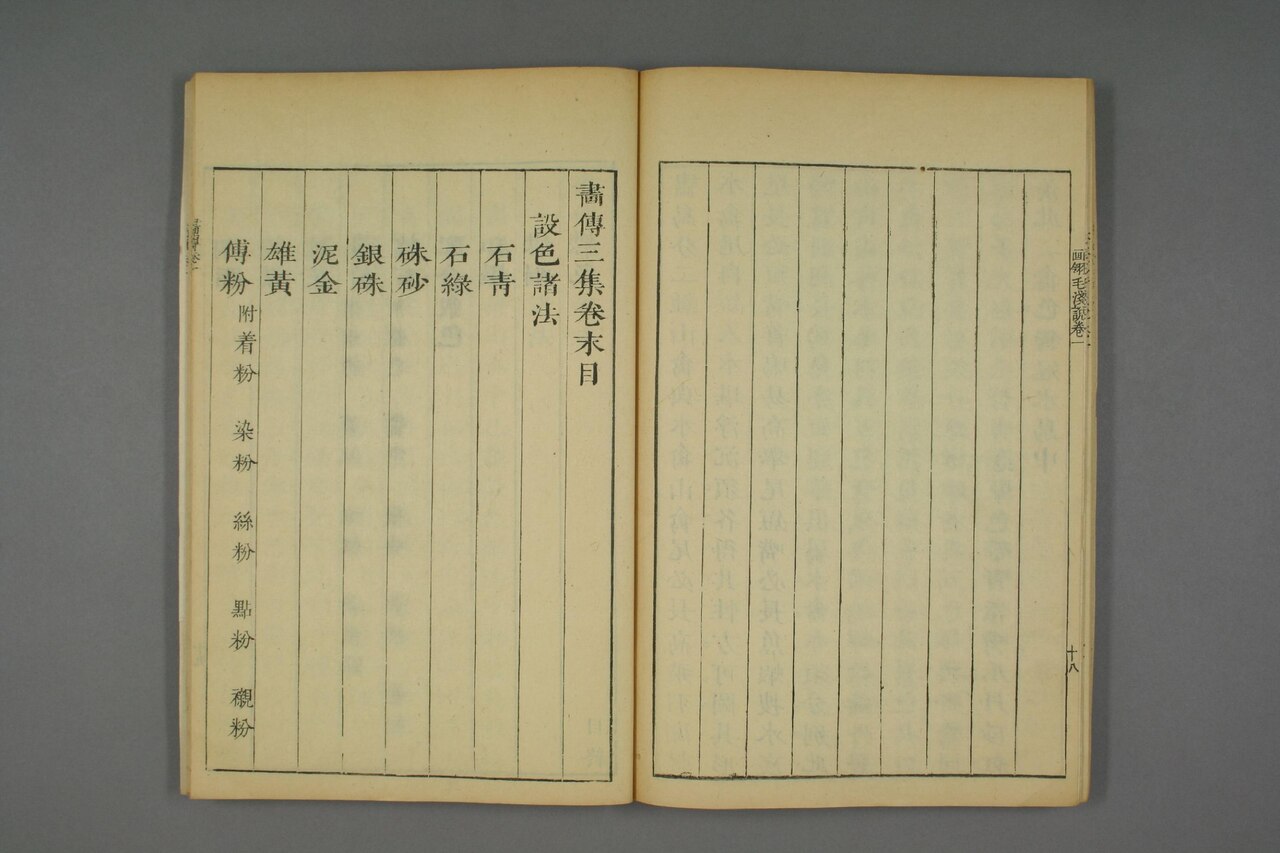 畵傳三集卷末目
設色諸法
石青
石綠
硃砂
銀硃
泥金
雄黃
傅粉 附着粉 染粉 絲粉 點粉 襯粉
十八